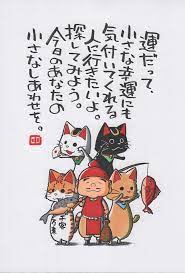 運だって、
小さな幸運にも
気付いてくれる
人に行きたいよ。
探してみよう。
今日のあなたの
小さなしあわせを。